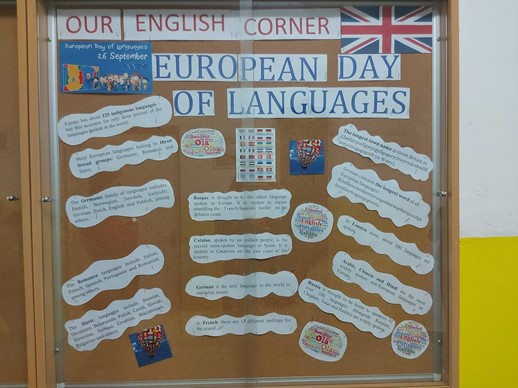 OUR ENGLISH CORNER
European Day of Languages
26 September
EUROPEAN DAY
OF LANGUAGES
Europe has about 225 indigenous languages
but this accounts for only three percent of the
languages spoken in the world.
Most European languages belong to three
broad groups: Germanic, Romance and
Slavic.
The Germanic family of languages includes
Danish, Norwegian, Swedish, Icelandic,
German, Dutch, English and Yiddish, among
others.
The Romance languages include Italian,
French, Spanish, Portuguese and Romanian,
among others.
The Slavic languages include Russian,
Ukrainian, Belarusian, Polish, Czech, Slovak,
Slovenian, Serbian, Croatian, Macedonian,
Bulgarian and others.
Olá
Basque is thought to be the oldest language
spoken in Europe. It is spoken in region
straddling the French/Spanish border on the
Atlantic coast.
Catalan, spoken by six million people, is the
second most-spoken language in Spain. It is
spoken in Catalonia on the east coast of the
country.
German is the only language in the world to
capitalise nouns.
In French, there are 13 different spellings for
the sound
The longest town name in Great Britain is
(in Wales).
German contains the longest word of all
European languages:
English
In London alone, about 100 languages are
spoken.
Arabic, Chinese and Hindi are the most
widely spoken non-European languages in
Europe.
Russia is thought to be home to speakers of
over languages. Alongside Russian,
Chechen, Tatar and Bashkir are widely spoken.
Olá
English